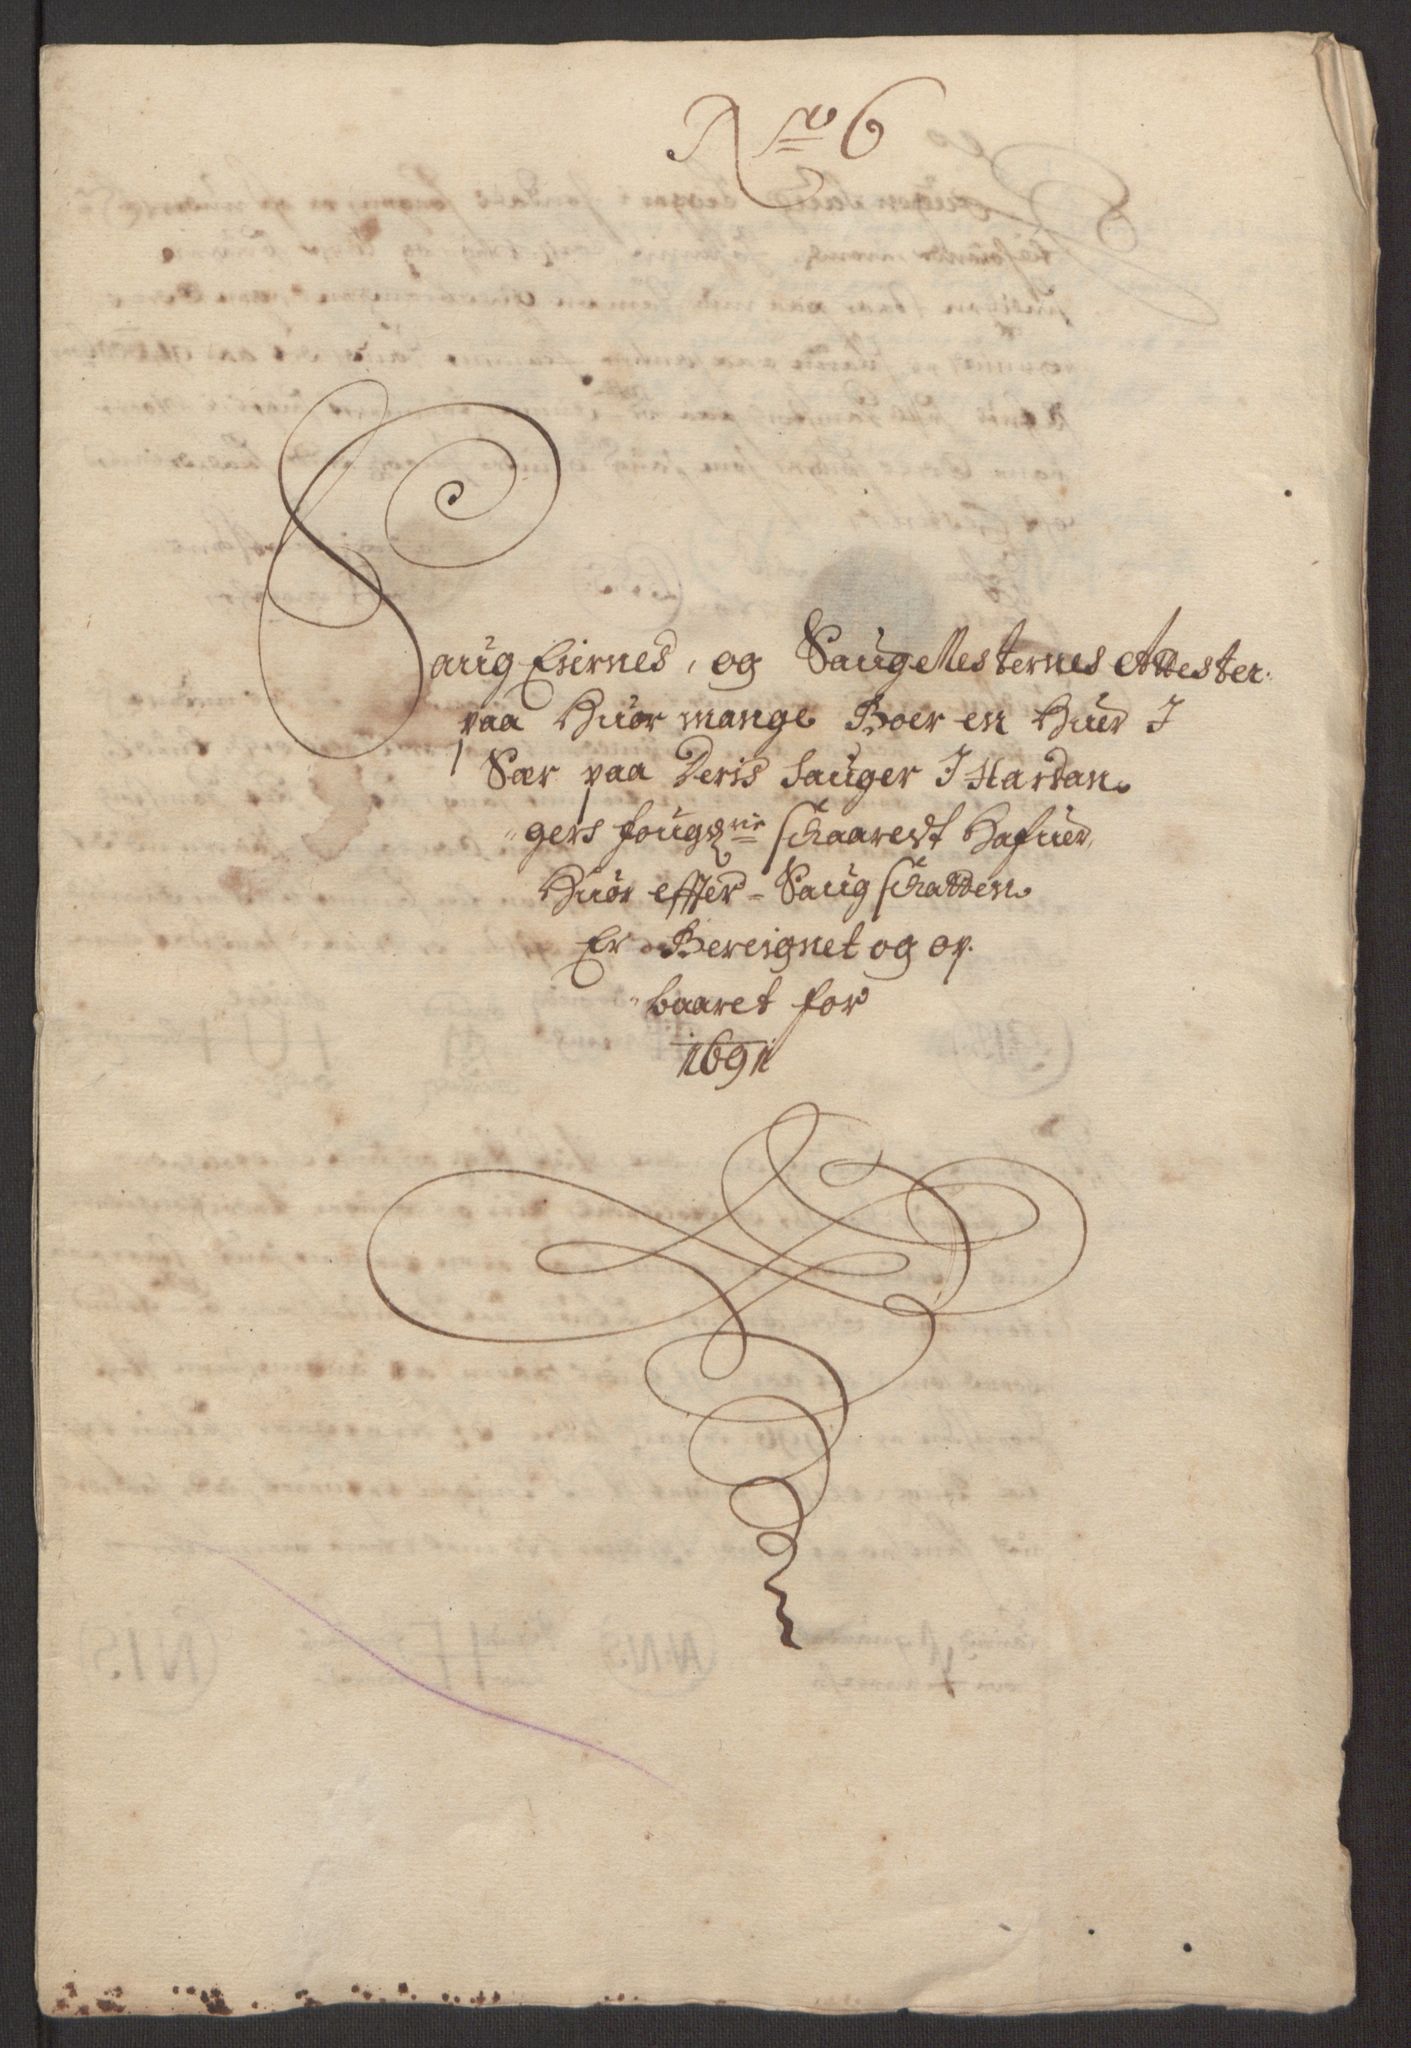 No 6
Saug Eiernes, og Saugmesternes Attester
paa Huor mange Boer en Huer I
Sær paa Deris Sauger I Hardan
gers fougderie schaaredt Hafuer,
Huor effter Saug schatten
Er Bereignet og op
baaret for
1691